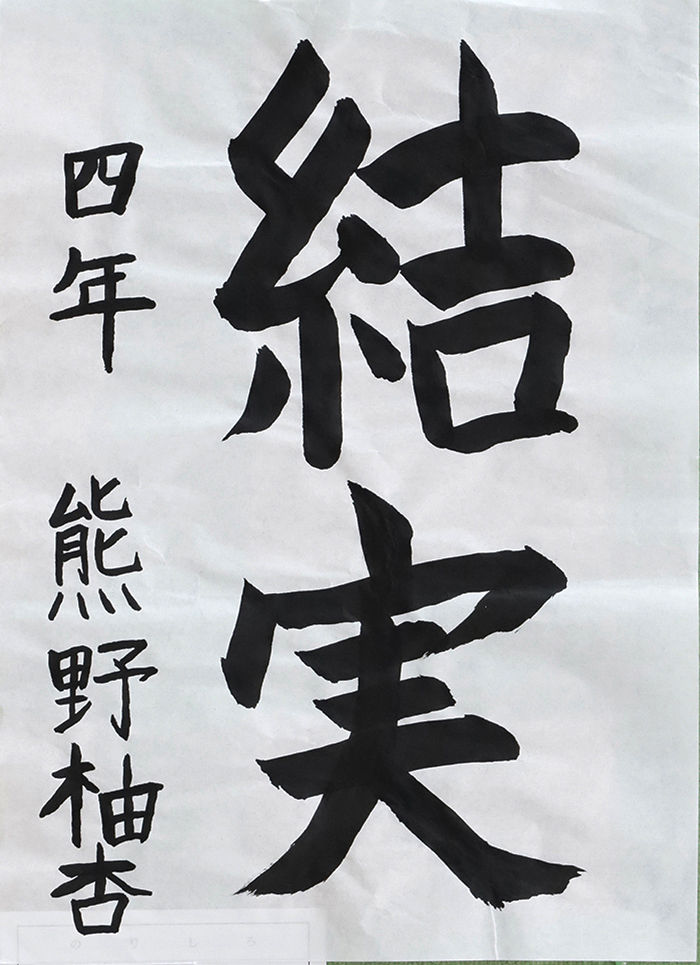 結実
四年 熊野柚杏
のりしろ